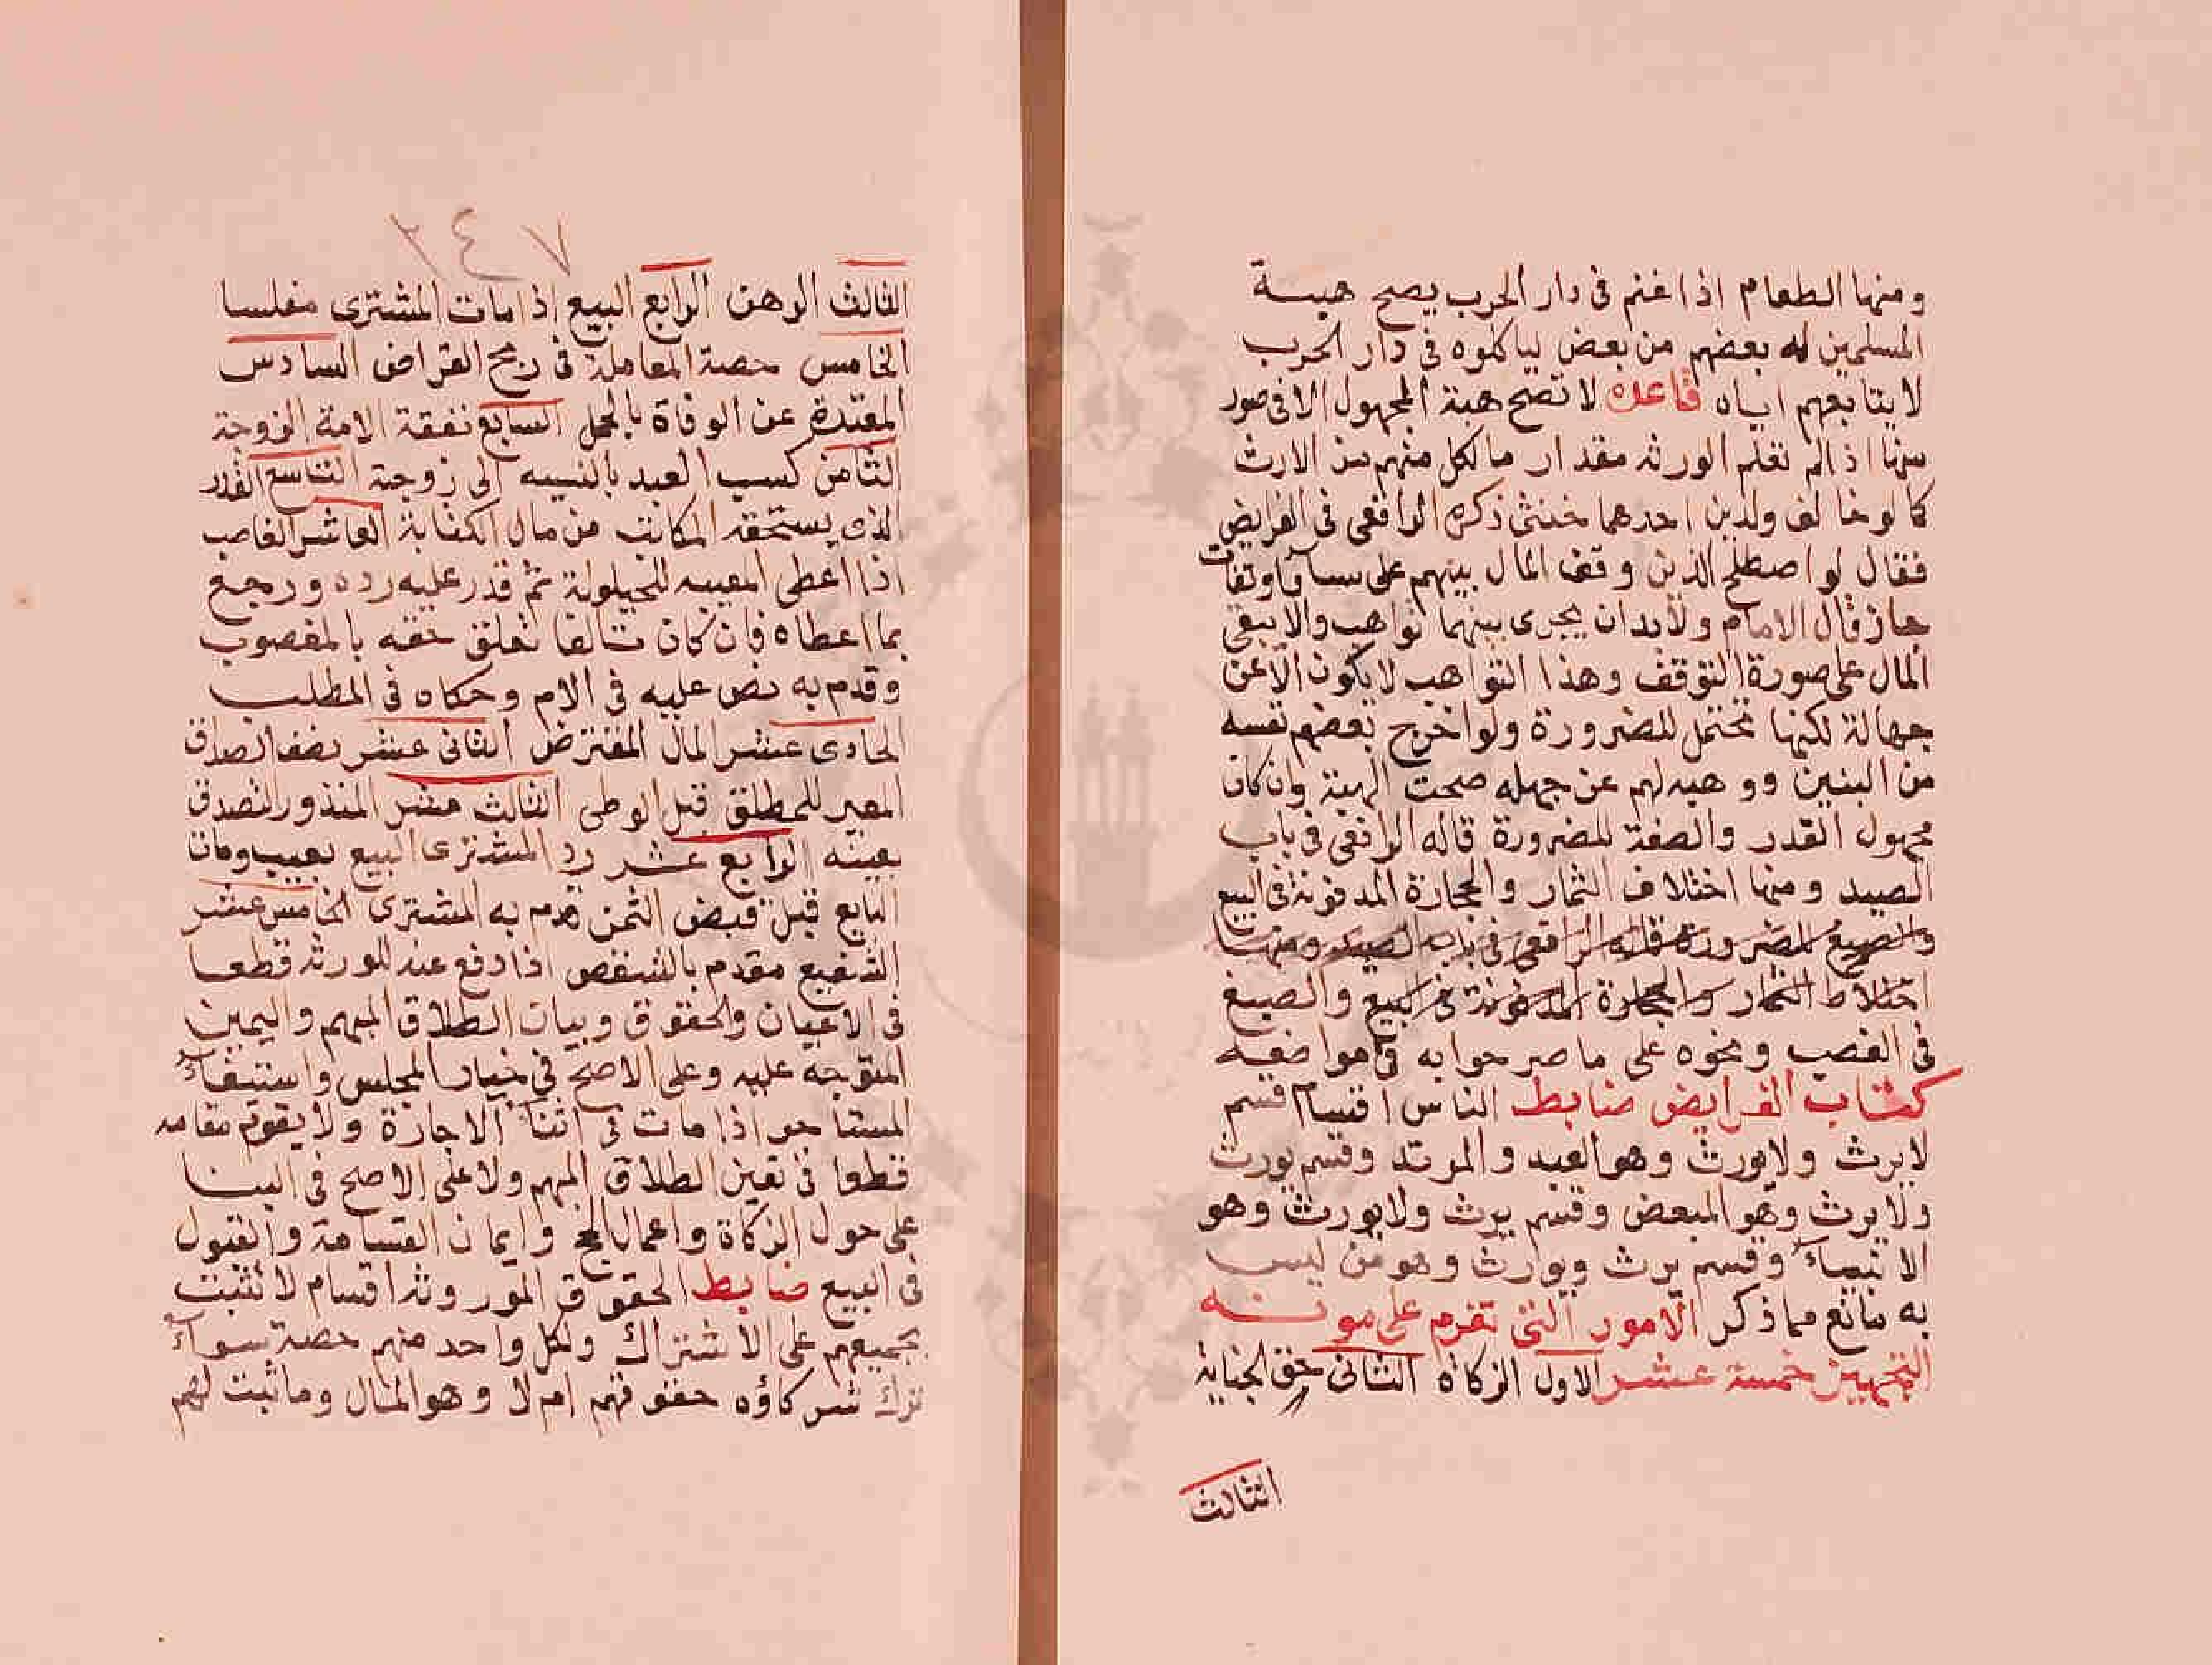 ومنها الطعام اذا غنم فى دار الحرب يصح هبة
المسلمين له بعضهم من بعض لياكلوه فى دار الحرب
لا يتبايعهم اياه قاعدة لا تصح هبة المجهول الا فى صور
منها اذا لم تعلم الورثه مقدار ما لكل منهم من الارث
كما لو خالف ولدين احدهما خنثى ذكره الرافعى فى الفرايض
فقال لو اصطلح الذين وقف المال بينهم على تساو او تفاوت
جاز قال الامام ولا بد ان يجرى بينهما تواهب والا لبقى
المال على صورة التوقف وهذا التواهب لا يكون الا عن
جهالة لكنها تحتمل للضرورة ولو اخرج بعضهم نفسه
من البنين ووهبه لهم عن جهله صحت الهبة وان كان
مجهول القدر والصفة للضرورة قاله الرافعى فى باب
الصيد ومنها اختلاف الثمار والحجارة المدفونة فى البيع
والصبغ للضرورة قاله الرافعى فى باب الصيد ومنها
اختلاط الثمار والحجارة المدفونة فى البيع والصبغ
فى الغصب ونحوه على ما صرحوا به فى مواضعه
كتاب الفرايض ضابط الناس اقسام قسم
لا يرث ولا يورث وهو العبد والمرتد وقسم يورث
ولا يرث وهو المبعض وقسم يرث ولا يورث وهو
الانبياء وقسم يرث ويورث وهو من ليس
به مانع مما ذكر الامور التى تقدم على مونة
التجهيز خمسة عشر الاول الزكاة الثانى حق الجناية
الثالث
٢٤٧
الثالث الرهن الرابع البيع اذا مات المشترى مفلسا
الخامس حصة المعاملة فى ربح القراض السادس
المعتدة عن الوفاة بالحمل السابع نفقة الامة الزوجة
الثامن كسب العبد بالنسبه الى زوجة التاسع القدر
الذى يستحقه المكاتب من مال الكتابة العاشر الغاصب
اذا اعطى القيمه للحيلولة ثم قدر عليه رده ورجع
بما اعطاه فان كان تالفا تعلق حقه بالمغصوب
وقدم به نص عليه فى الام وحكاه فى المطلب
الحادى عشر المال المقترض الثانى عشر نصف الصداق
المعين للمطلق قبل الوطى الثالث عشر المنذور التصدق
بعينه الرابع عشر رد المشترى المبيع بعيب ومات
البايع قبل قبض الثمن قدم به المشترى الخامس عشر
الشفيع مقدم بالشقص اذا دفع عند للورثه قطعا
فى الاعيان والحقوق وبيان الطلاق المبهم واليمين
المتوجه عليه وعلى الاصح فى خيار المجلس واستيفاء
المستاجر اذا مات فى اثناء الاجارة ولا يقوم مقامه
قطعا فى تعين الطلاق المبهم ولا على الاصح فى البنا
على حول الزكاة واعمال الحج وايمان القسامة والقبول
فى البيع ضابط الحقوق الموروثه اقسام لا تثبت
بجميعهم على الاشتراك ولكل واحد منهم حصة سواء
ترك شركاؤه حقوقهم ام لا وهو المال وما ثبت لهم